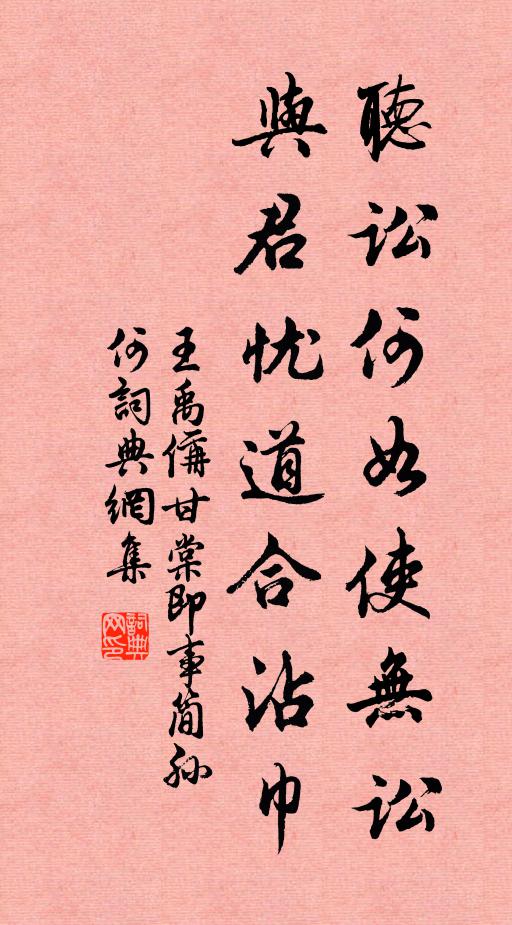 聽訟何如使無訟
與君忧道合沾巾
王禹偁甘棠即事简孙
何詞典網集
詞典网印